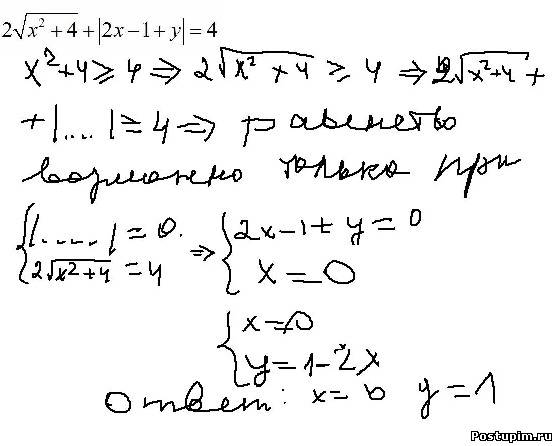 2√(x²+4)+|2x−1+y|=4
x²+4 ≥ 4 ⇒ 2√(x²+4) ≥ 4 ⇒ 2√(x²+4) +
+|....| ≥ 4 ⇒ равенство
возможно только при
{|.....|=0. ⇒ {2x−1+y=0
{2√(x²+4)=4 {x=0
{x=0
{y=1−2x
ответ: x=0 y=1
Postupim.ru